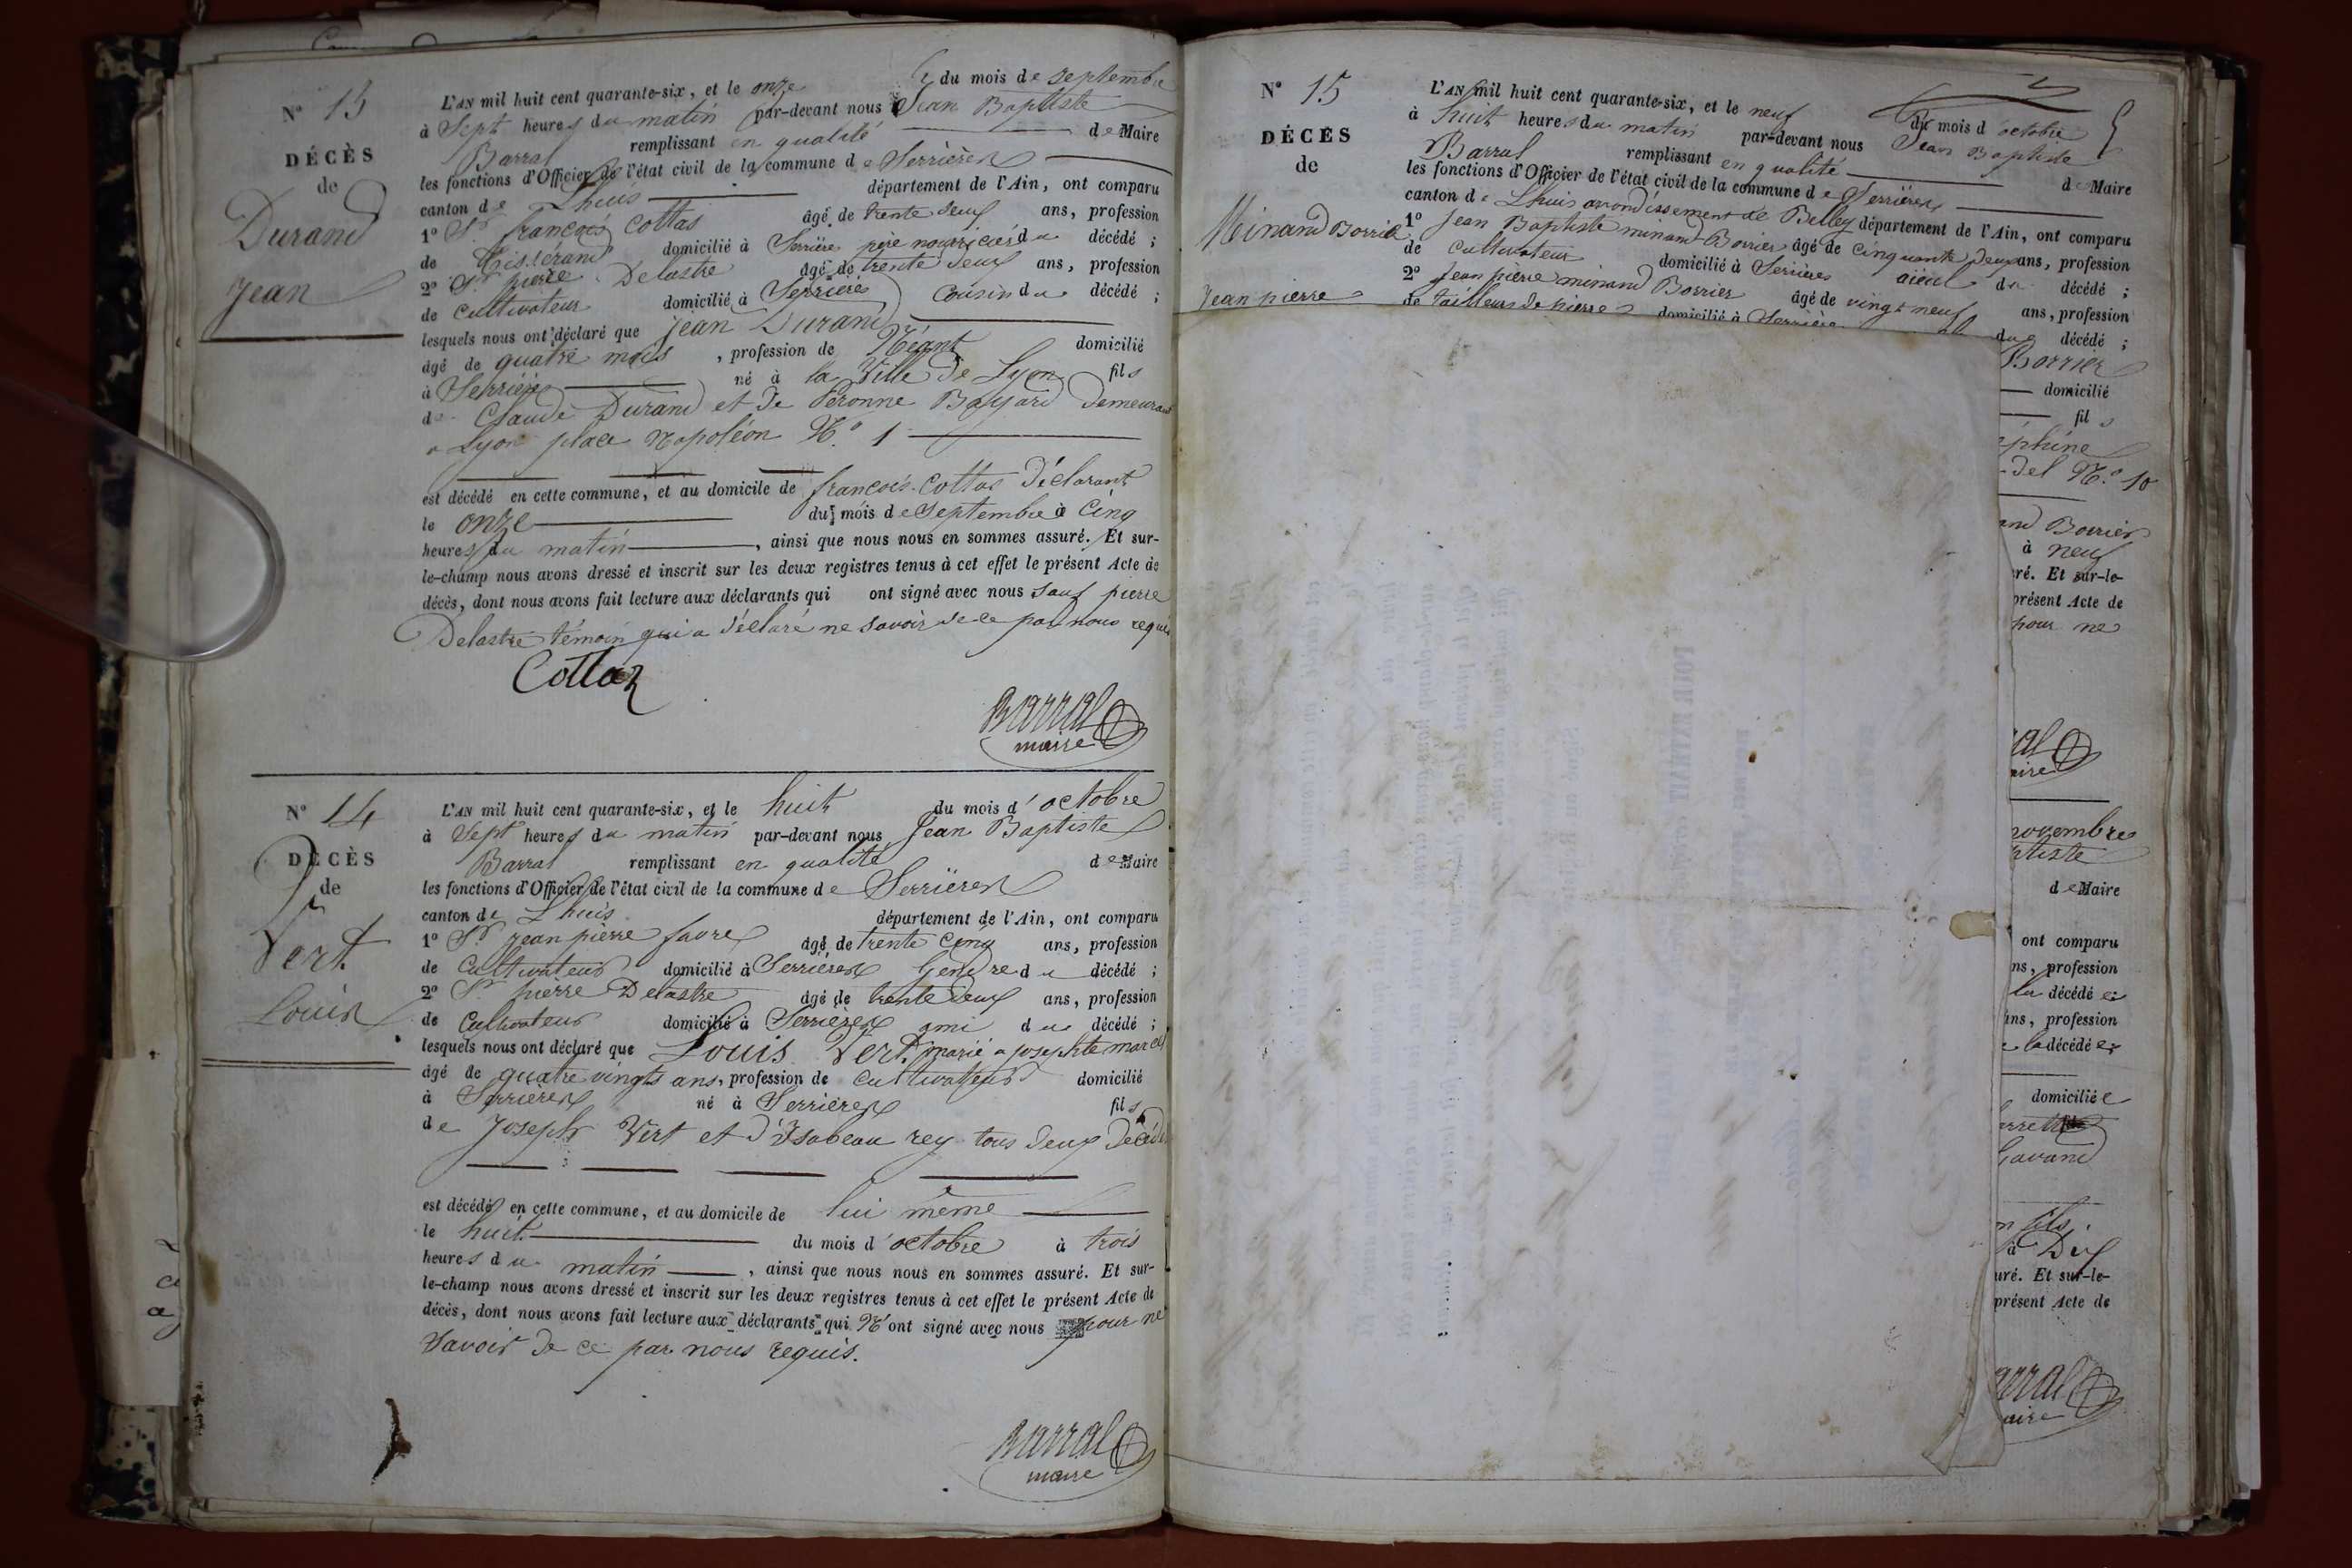 N° 13
DÉCÈS
de
Durand
Jean
L'AN mil huit cent quarante-six, et le onze du mois de septembre
à Sept heures du matin par-devant nous Jean Baptiste
Barral remplissant en qualité de Maire
les fonctions d'Officier de l'état civil de la commune de Serrières
canton de Lhuis département de l'Ain, ont comparu
1° Sr francois Cottas âgé de trente deux ans, profession
de Tisserand domicilié à Serrière père nourricier du décédé ;
2° Sr pierre Delastre âgé de trente deux ans, profession
de Cultivateur domicilié à Serrieres Cousin du décédé ;
lesquels nous ont déclaré que Jean Durand
âgé de quatre mois , profession de Néant domicilié
à Serrières né à la Ville de Lyon fils
de Claude Durand et de Péronne Bayard demeurant
a Lyon place Napoléon N° 1
est décédé en cette commune, et au domicile de francois Cottas Déclarant
le onze du mois de Septembre à Cinq
heures du matin , ainsi que nous nous en sommes assuré. Et sur-
le-champ nous avons dressé et inscrit sur les deux registres tenus à cet effet le présent Acte de
décès, dont nous avons fait lecture aux déclarants qui ont signé avec nous sauf pierre
Delastre témoin qui a déclaré ne savoir de ce par nous requis
Cottaz
Barral
maire
N° 14
DÉCÈS
de
Vert
Louis
L'AN mil huit cent quarante-six, et le huit du mois d'octobre
à Sept heures du matin par-devant nous Jean Baptiste
Barral remplissant en qualité de Maire
les fonctions d'Officier de l'état civil de la commune de Serrières
canton de Lhuis département de l'Ain, ont comparu
1° Sr Jean pierre favre âgé de trente Cinq ans, profession
de Cultivateur domicilié à Serrières Gendre du décédé ;
2° Sr pierre Delastre âgé de trente deux ans, profession
de Cultivateur domicilié à Serrières ami du décédé ;
lesquels nous ont déclaré que Louis Vert, marié a josephte marcel
âgé de quatre vingts ans, profession de Cultivateur domicilié
à Serrières né à Serrières fils
de Joseph Vert et d'Isabeau rey tous deux Décédés
est décédé en cette commune, et au domicile de lui même
le huit du mois d'octobre à trois
heures du matin , ainsi que nous nous en sommes assuré. Et sur-
le-champ nous avons dressé et inscrit sur les deux registres tenus à cet effet le présent Acte de
décès, dont nous avons fait lecture aux déclarants qui N'ont signé avec nous pour ne
savoir de ce par nous requis.
Barral
maire
N° 15
DÉCÈS
de
Meinand Borrier
Jean pierre
L'AN mil huit cent quarante-six, et le neuf du mois d'octobre
à huit heures du matin par-devant nous Jean Baptiste
Barral remplissant en qualité de Maire
les fonctions d'Officier de l'état civil de la commune de Serrières
canton de Lhuis arrondissement de Belley département de l'Ain, ont comparu
1° Jean Baptiste minand Borrier âgé de Cinquante deux ans, profession
de Cultivateur domicilié à Serrières aieul du décédé ;
2° Jean pierre minand Borrier âgé de vingt neuf ans, profession
de tailleur de pierres domicilié à Serrière du décédé ;
Borrier
domicilié
fils
éphine
del N° 10
and Borrier
à neuf
ré. Et sur-le-
présent Acte de
pour ne
al
aire
novembre
ptiste
de Maire
ont comparu
ns, profession
la décédée;
ans, profession
la décédée;
domiciliée
Gavand
n fils.
à Dix
uré. Et sur-le-
présent Acte de
arral
aire